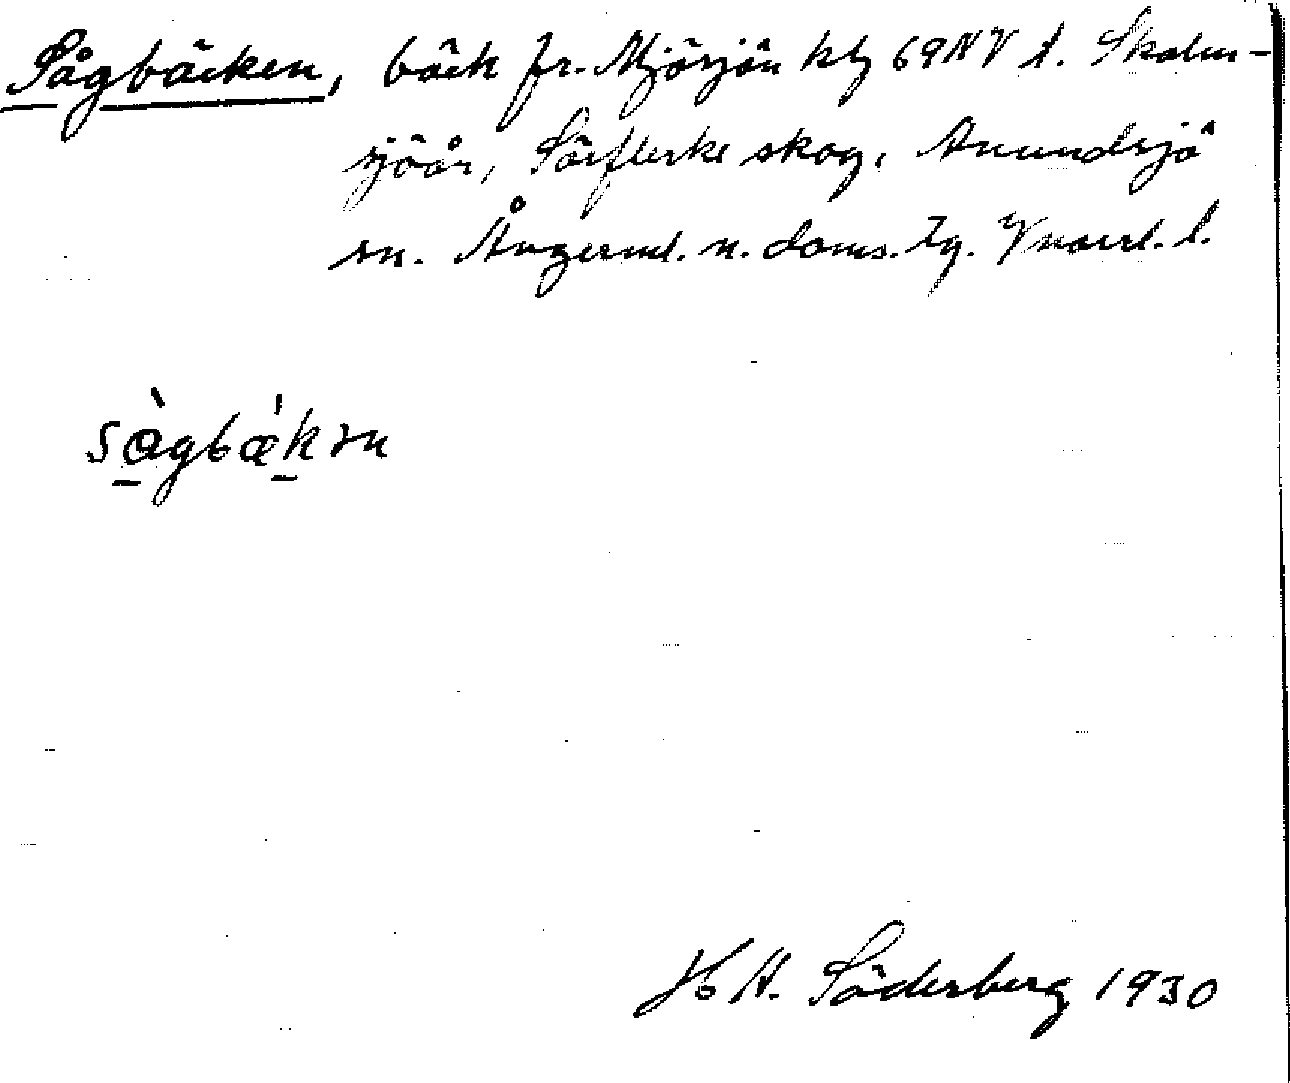 Sågbäcken, bäck fr. Mjösjön kbl 69NV t. Skalm-
sjöår, Särflerke skog, Anundsjö
sn. Ångerml. n. doms. tg. Vnorrl. l.
sågbækən
H A. Söderberg 1930